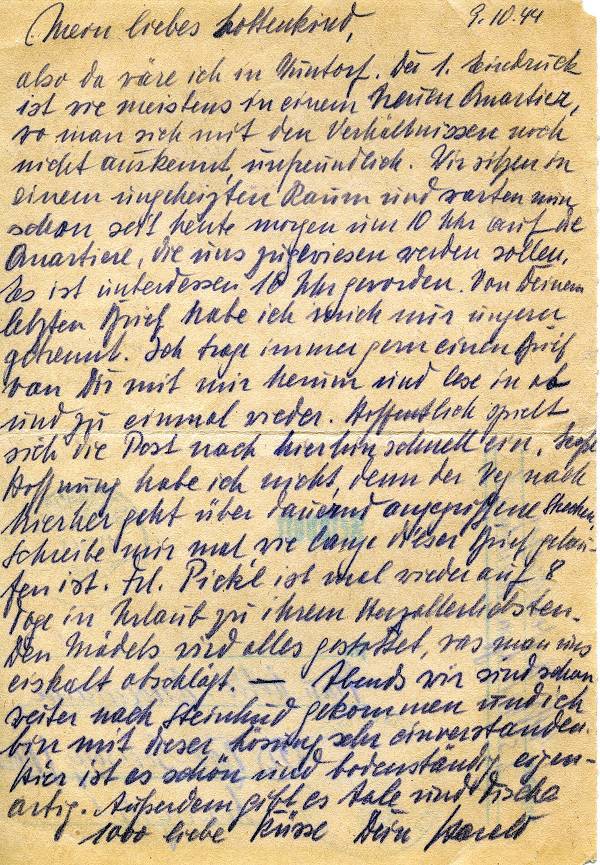 9.10.44
Mein liebes Lottenkind,
also da wäre ich in Huntorf. Der 1. Eindruck
ist wie meistens in einem neuen Quartier,
wo man sich mit den Verhältnissen noch
nicht auskennt, unfreundlich. Wir sitzen in
einem ungeheizten Raum und warten nun
schon seit heute morgen um 10 Uhr auf die
Quartiere, die uns zugewiesen werden sollen.
Es ist unterdessen 16 Uhr geworden. Von Deinem
letzten Brief habe ich mich nur ungern
getrennt. Ich trage immer gern einen Brief
von Dir mit mir herum und lese in ab
und zu einmal wieder. Hoffentlich spielt
sich die Post nach hierhin schnell ein. Große
Hoffnung habe ich nicht, denn der Weg nach
hierher geht über dauernd angegriffene Strecken.
Schreibe mir mal wie lange dieser Brief gelau-
fen ist. Frl. Pickl ist mal wieder auf 8
Tage in Urlaub zu ihrem Herzallerliebsten.
Den Mädels wird alles gestattet, was man uns
eiskalt abschlägt. — Abends wir sind schon
weiter nach Steinhud gekommen und ich
bin mit dieser Lösung sehr einverstanden.
Hier ist es schön und bodenständig eigen-
artig. Außerdem gibt es Aale und Fische
1000 liebe Küsse Dein Harald